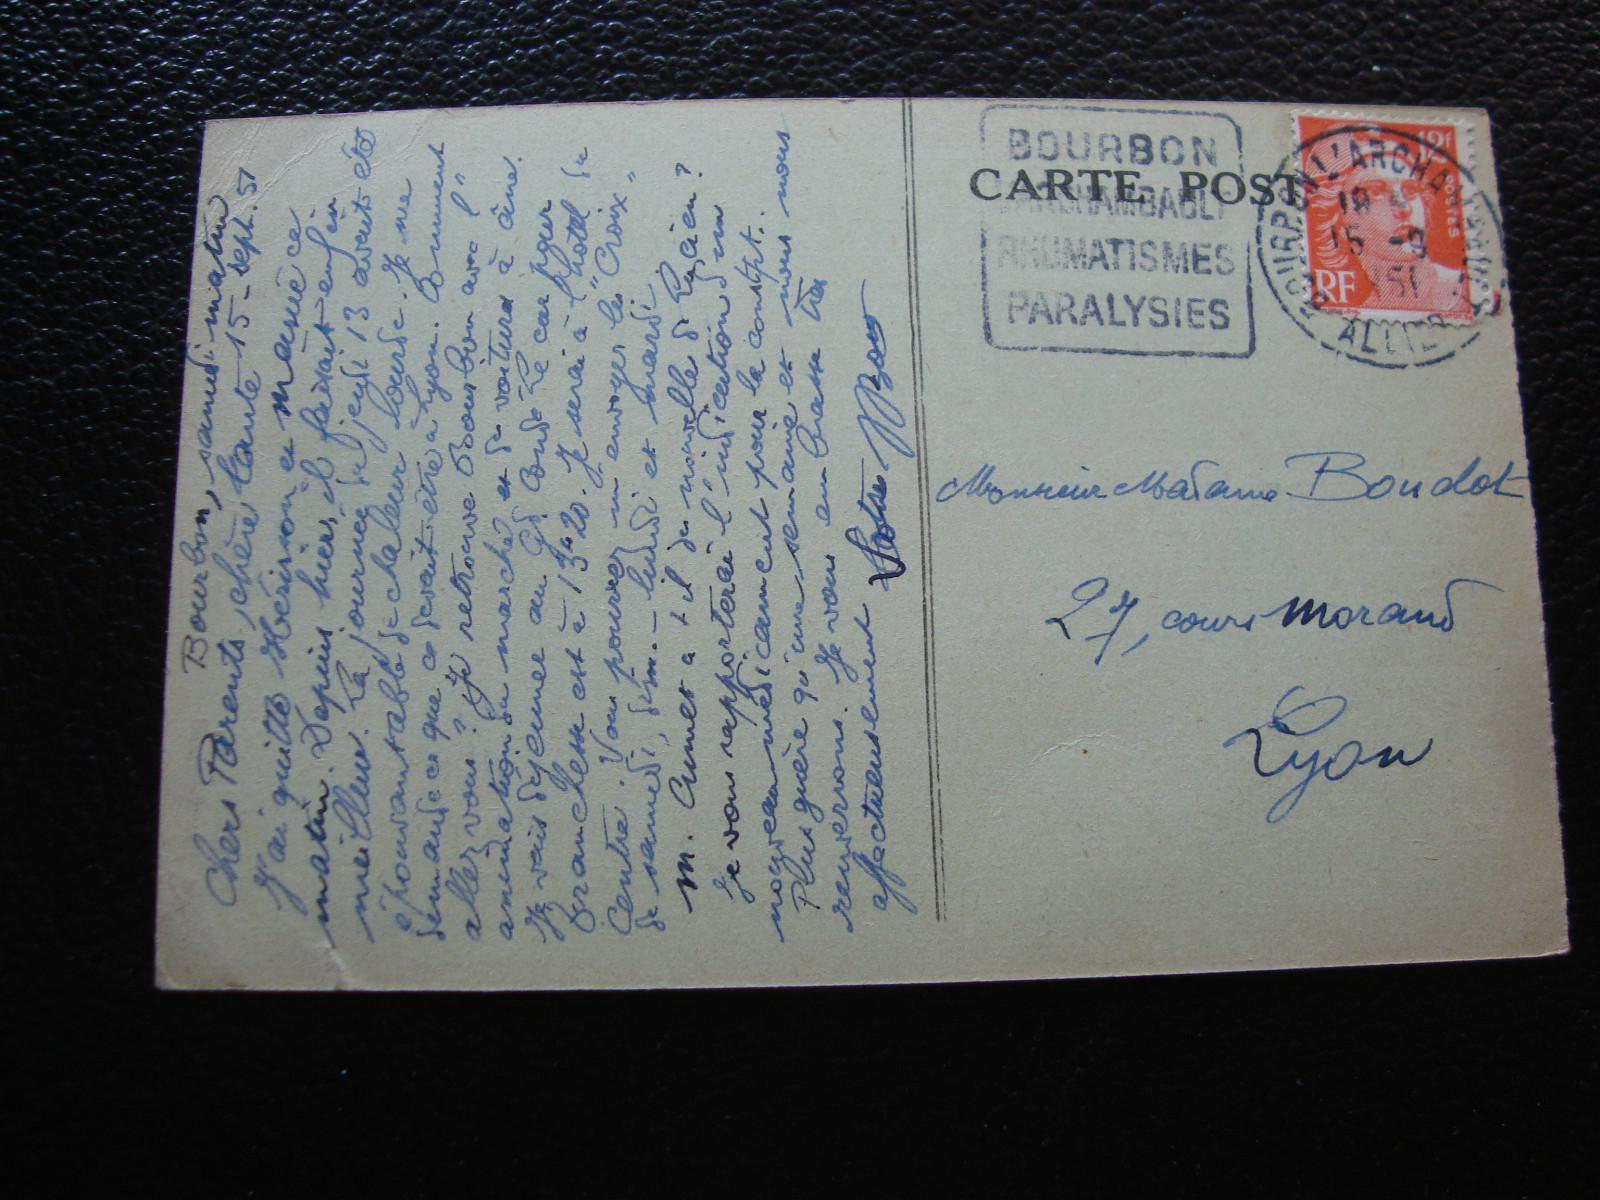 Bourbon, samedi matin
15 - sept. 51
Chers Parents, chère tante
J'ai quitté Hérisson et Maurice ce
matin. Depuis hier, il faisait enfin
meilleur. La journée du jeudi 13 avait été
épouvantable de chaleur lourde. Je me
demande ce que ce devait être à Lyon. Comment
allez vous ? Je retrouve Bourbon avec l'
animation du marché et de voitures à âne.
Je vais déjeuner au Gd Condé. Le car pour
est à 13h20. Je serai à l'hôtel du
Centre. Vous pourrez m'envoyer les "Croix"
de samedi, dim. - lundi et mardi.
M. a t il de nouvelle de Lucien ?
Je vous rapporterai l'indication d'un
nouveau médicament pour la constipt.
Plus guère qu'une semaine et nous nous
reverrons. Je vous embrasse très
affectueusement
Votre
CARTE POST
BOURBON
L'ARCHAMBAULT
RHUMATISMES
PARALYSIES
BOURBON L'ARCHAMBAULT
18
15 - 9
1951
ALLIER
12f
POSTES
RF
Monsieur Madame Boudot
27, cours Morand
Lyon